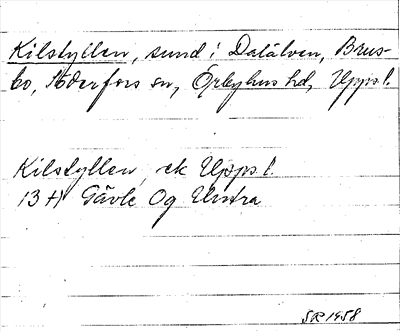 Kilstyllen, sund i Dalälven, Brus-
bo, Söderfors sn, Örbyhus hd, Upps l.
Kilstyllen, ek Upps l.
13 H Gävle Og Untra
SR 1958